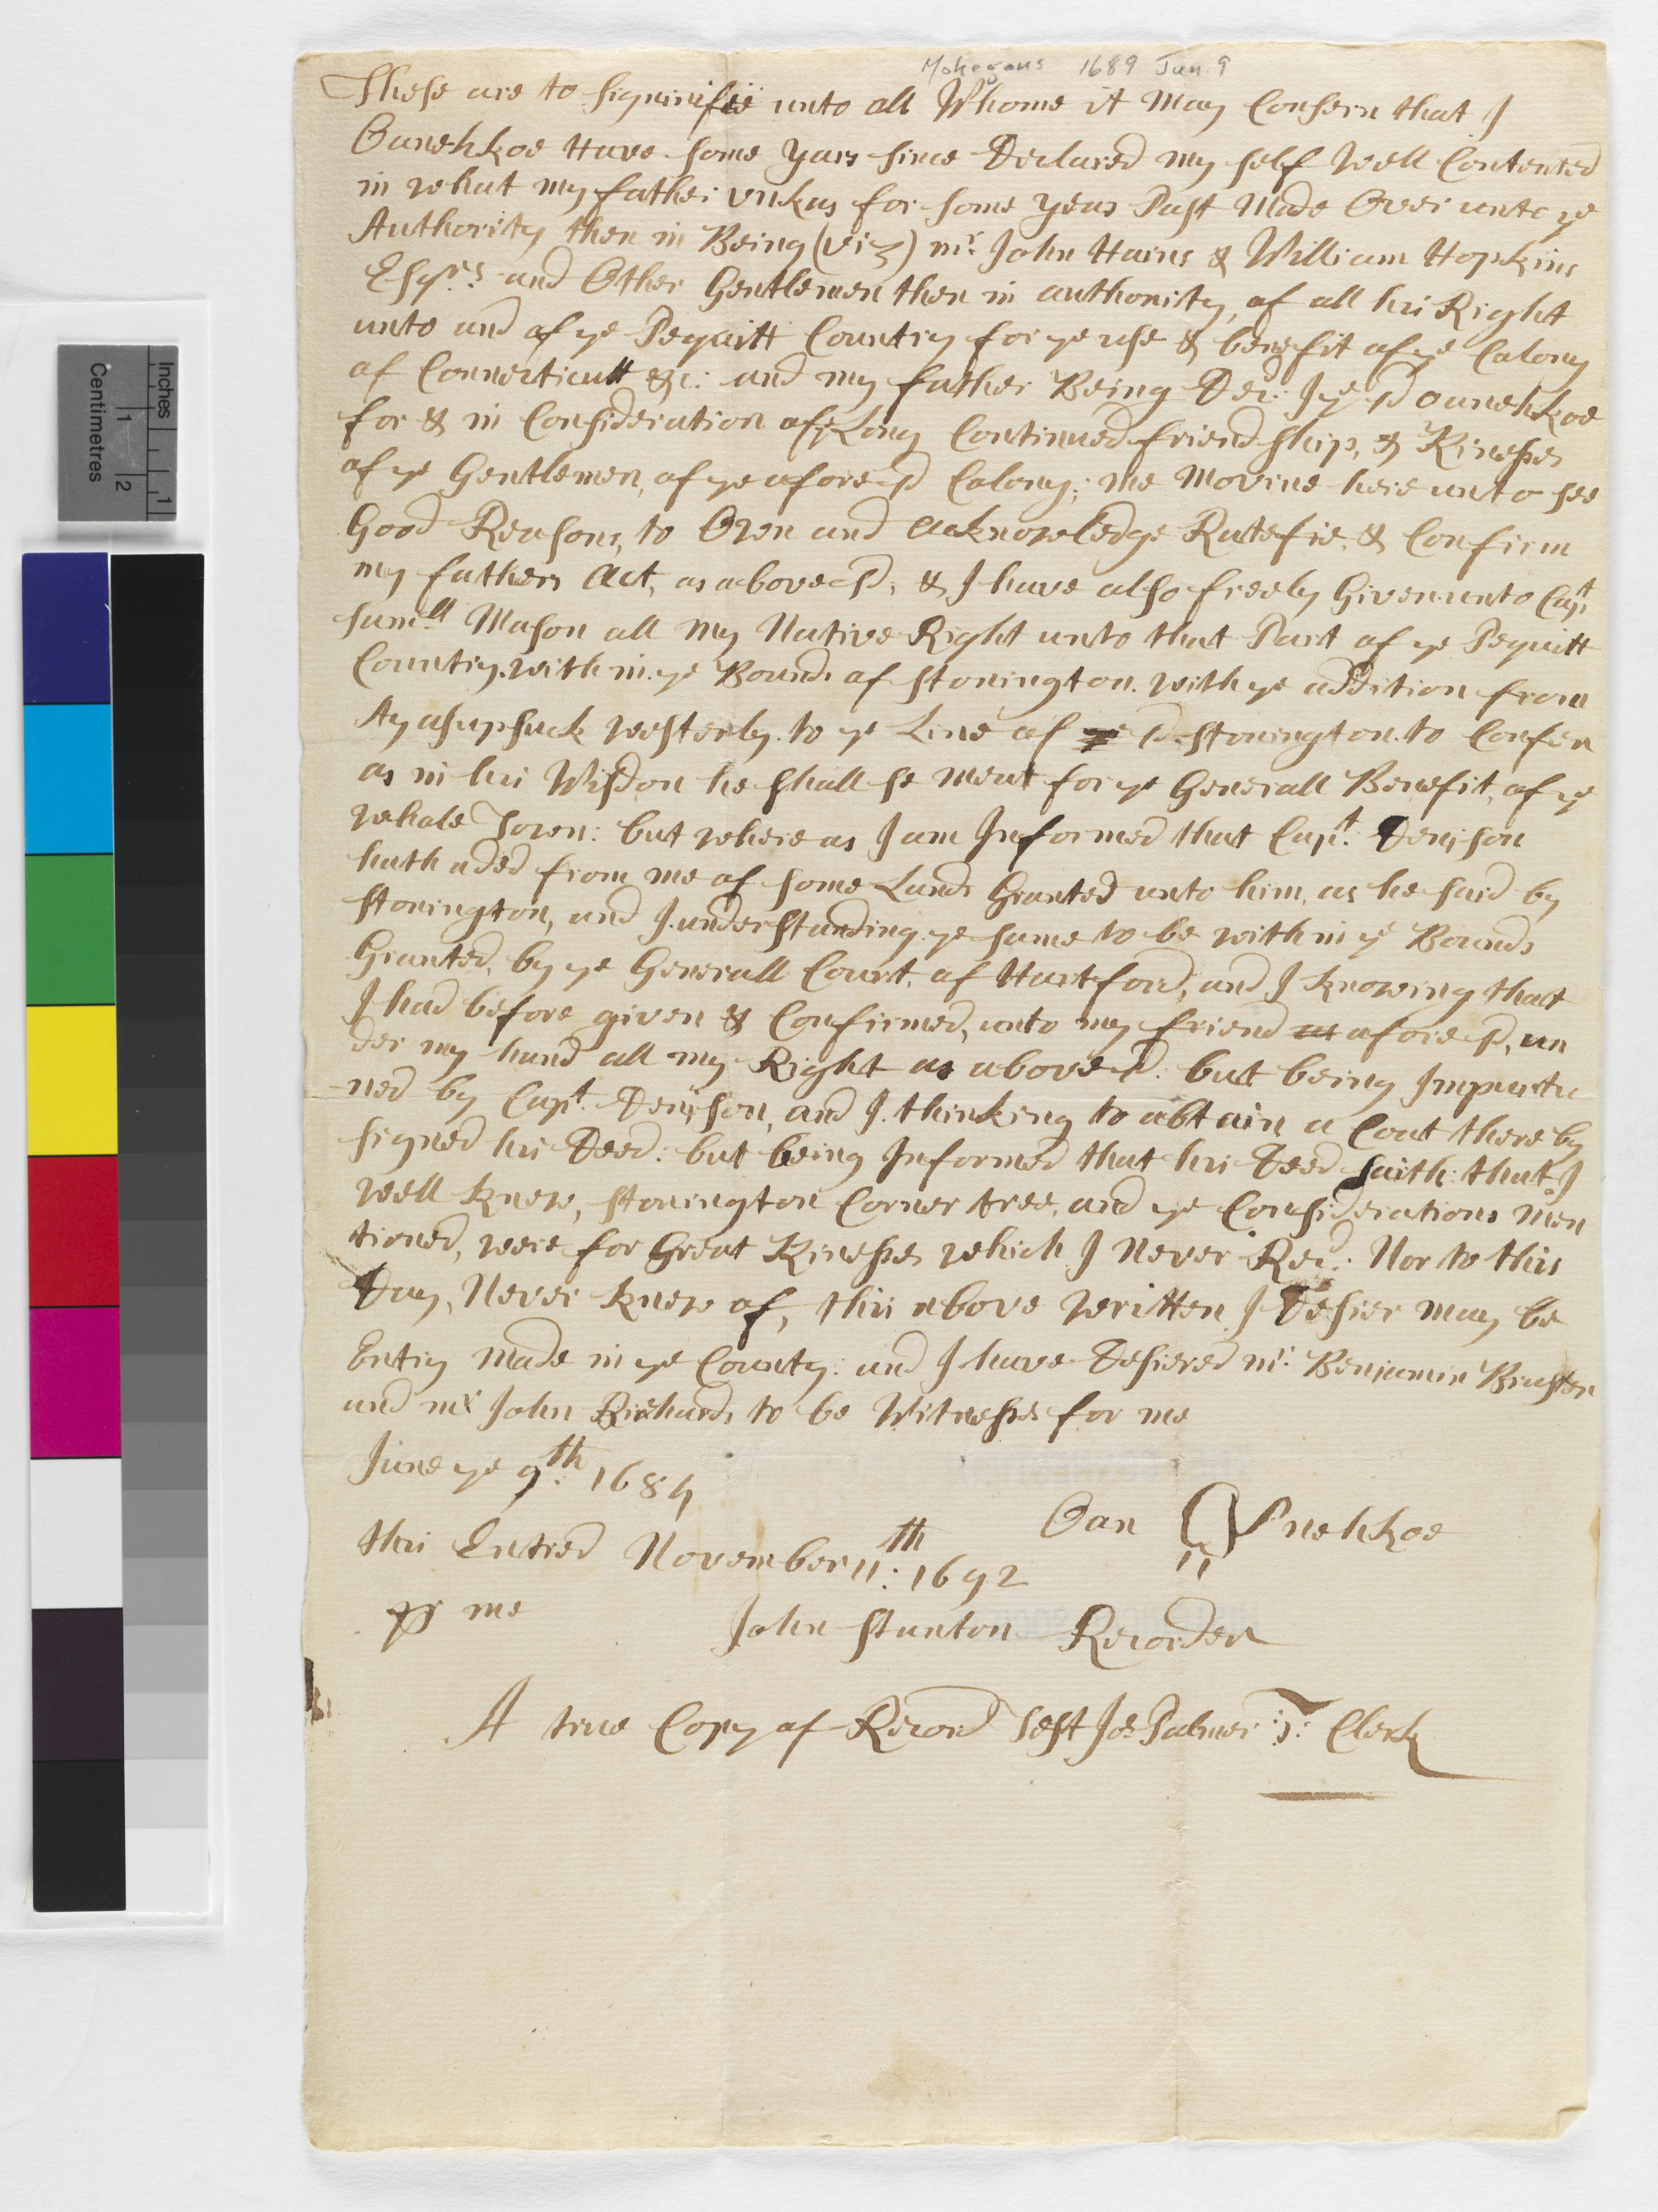 Mohegans 1689 Jun. 9
These are to signinifie unto all Whome it May Consern that I
Ounehkoe Have some yars since Declared my self well Contented
in what my father Unkas for some years Past Made Over unto ye
Authority then in Being (viz) mr. John Hains & William Hopkins
Esqrs. and Other Gentlemen then in authority, of all his Right
unto and of ye Pequitt Country for ye use & benefit of ye Calony
of Connecticutt &c: and my father Being Dec: I ye sd Ounehkoe
for & in Consideration of ye Long Continued friendship, & Kinesses
of ye Gentlemen, of ye afore sd Calony; me Moveing here unto see
Good Reasons, to Own and acknowledge Ratefie, & Confirm
my fathers Act, as above sd, & I have also freely Given unto Capt
Samll Mason all my Native Right unto that Part of ye Pequitt
Country. with in ye Bounds of Stonington. with ye addition from
Ayasupsuck westerly. to ye Line of sd Stonington. to Confer
as in his Wisdon he shall se meat for ye Generall Benefit, of ye
whole Town: but where as I am Informed that Capt. Denison
hath aded from me of some Lands Granted unto him, as he said by
Stonington, and I understanding ye same to be with in ye Bounds
Granted, by ye Generall Court. of Hartford, and I knowing that
I had before given & Confirmed, unto my friend afore sd, un
der my hand all my Right as above sd: but being Impurtu
-ned by Capt. Denison, and I. thinking to obtain a Coat there by
signed his Deed: but being Informed that his Deed saith: that I
well knew, Stonington Corner tree, and ye Considerations men
tioned, were for Great Kinesses which I Never Recd: Nor to this
Day, Never knew of, this above written I Desier may be
Entry made in ye County: and I have Desiered mr: Benjamin Bruster
and mr John Richards to be Witnesses for me
June ye 9th: 1689
Oun Nehkoe
this Entred November 11th: 1692
pr me
John Stanton Recorder
A true Copy of Record Test Jos Palmer T: Clerk
Inches
1
Centimetres
1
2